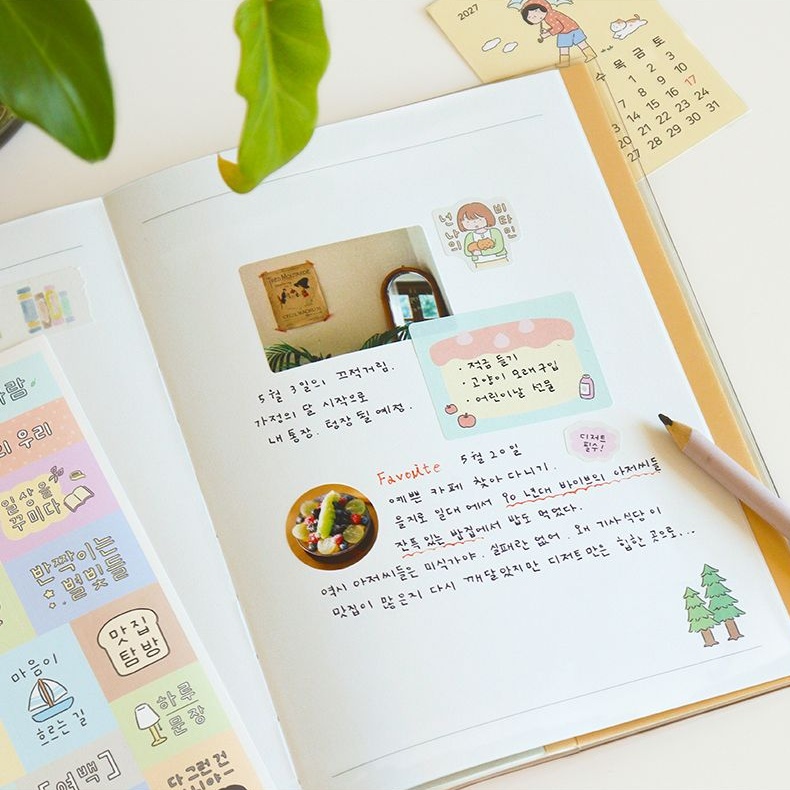 2027
수 목 금 토
1 2 3
7 8 9 10
13 14 15 16 17
20 21 22 23 24
27 28 29 30 31
넌 나의
비타민
5월 3일의 끄적거림.
가정의 달 시작으로
내 통장. 텅장 될 예정.
· 적금 들기
· 고양이 모래 구입
· 어린이날 선물
디저트
필수!
Favorite 5월 20일
예쁜 카페 찾아 다니기.
을지로 일대에서 90년대 바이브의 아저씨들
잔뜩 있는 밥집에서 밥도 먹었다.
역시 아저씨들은 미식가야. 실패란 없어. 왜 기사식당이
맛집이 많은지 다시 깨달았지만 디저트 만은 힙한 곳으로...
우리
일상을
꾸미다
반짝이는
별빛들
맛집
탐방
마음이
흐르는 길
하루
문장
[여백]
다 그런 건